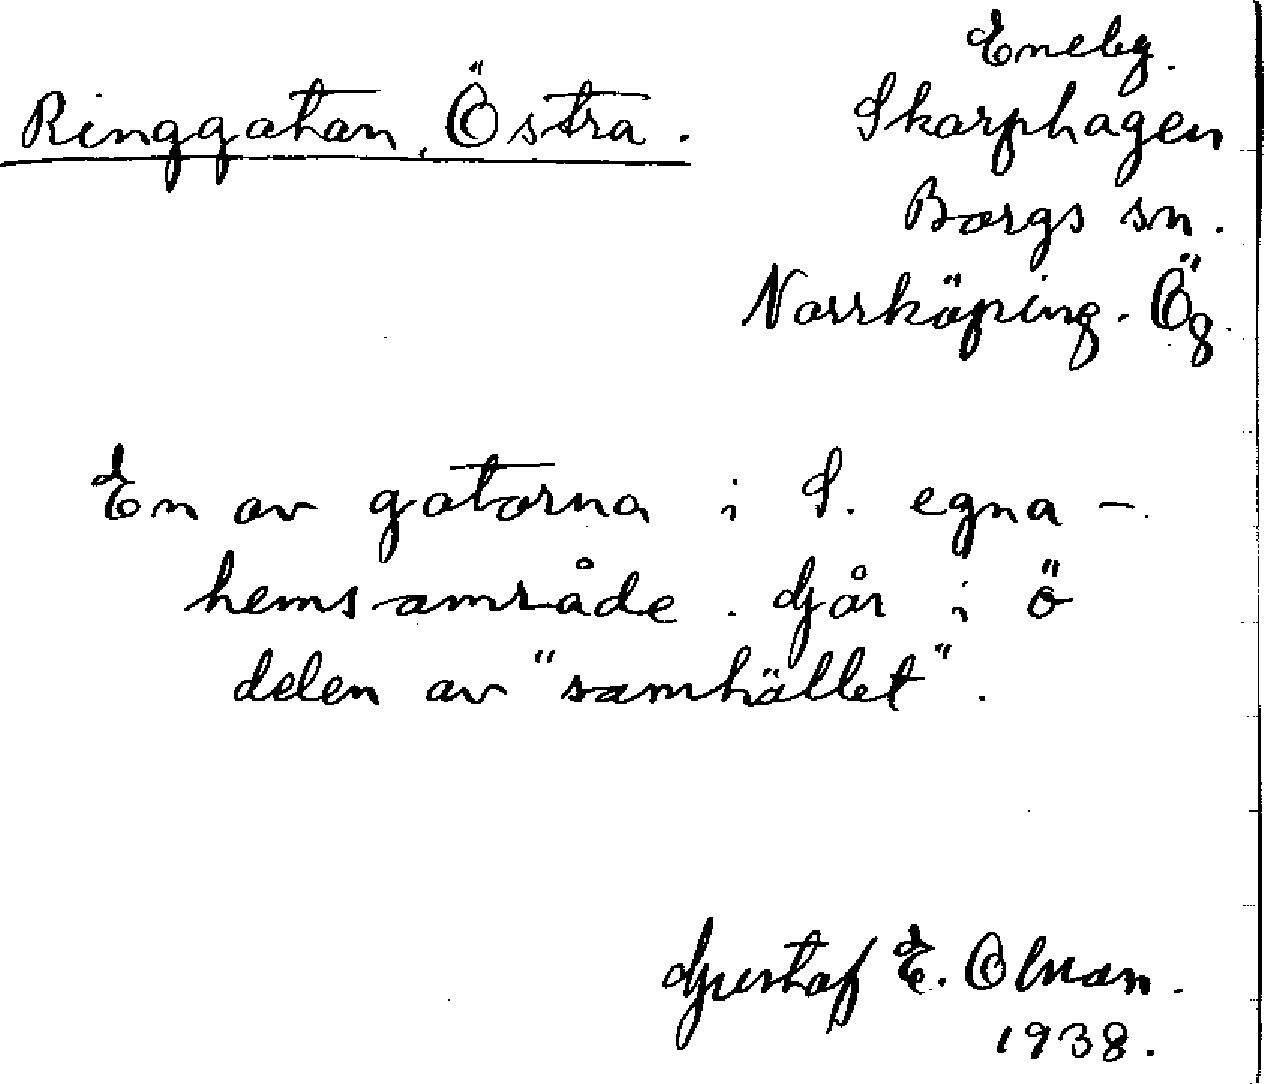 Eneby.
Ringgatan, Östra.
Skarphagen
Borgs sn.
Norrköping. Ög.
En av gatorna i S. egna-
hemsområde. Går i ö
delen av "samhället".
Gustaf E. Olson.
1938.